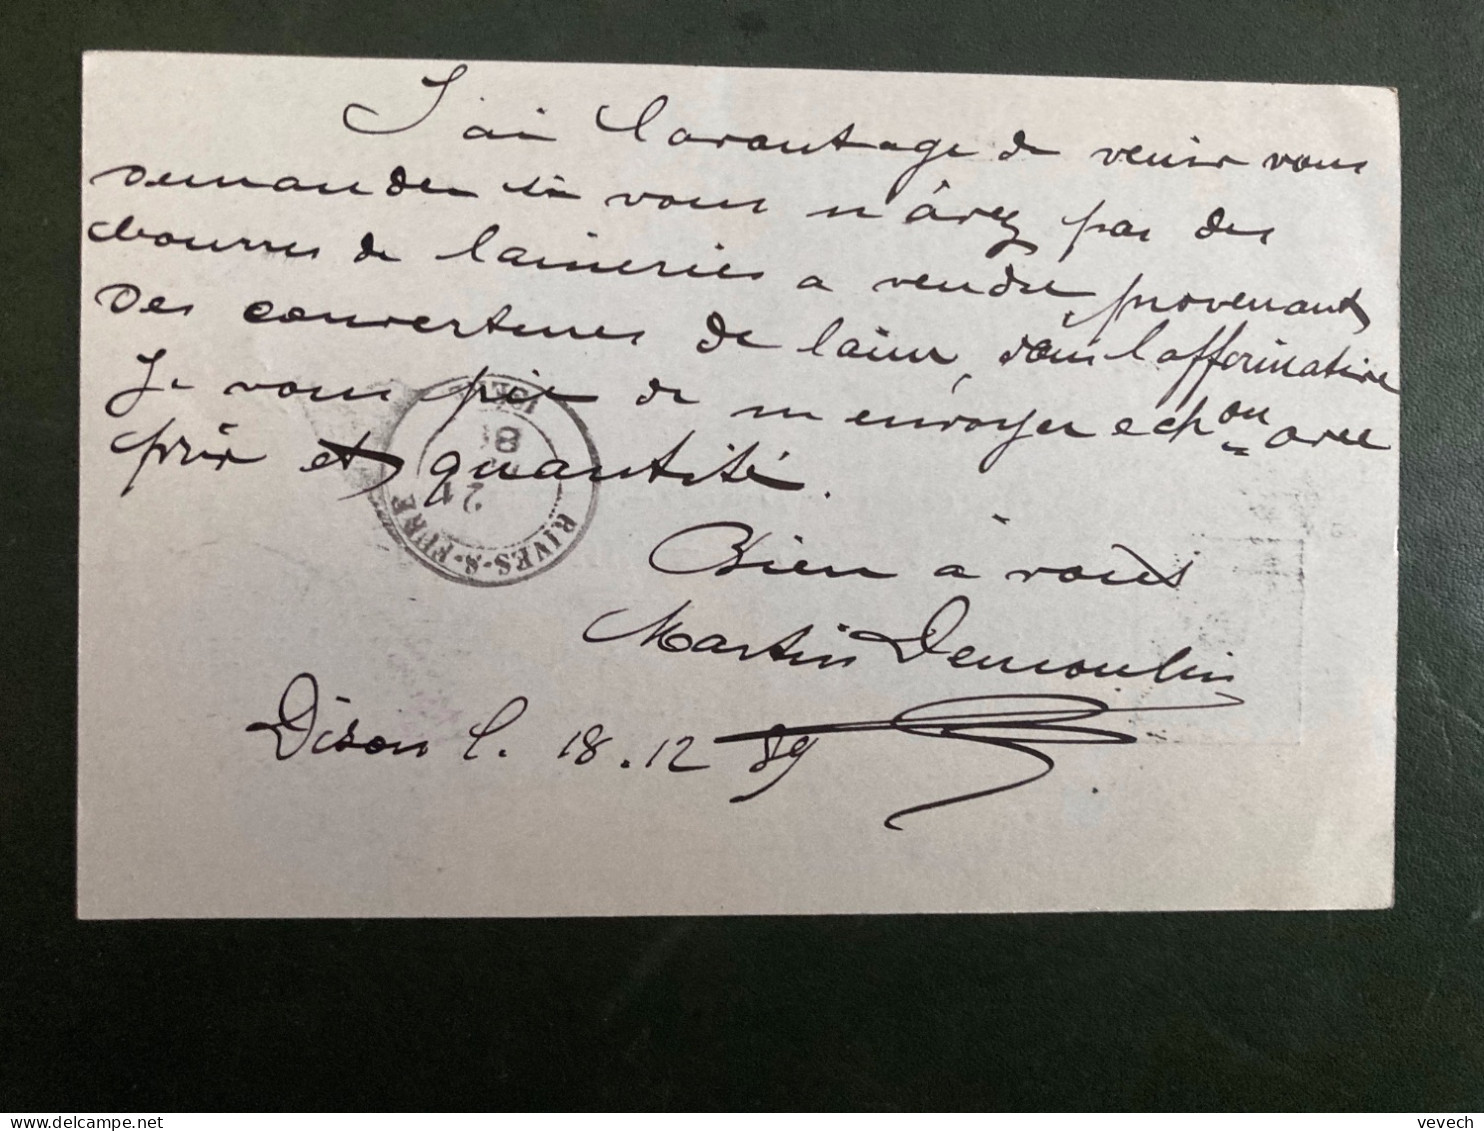 J'ai l'avantage de venir vous
demander si vous n'âvez pas des
bourres de laineries a vendre provenant
des couvertures de laine, dans l'affirmative
Je vous prie de m'envoyer echon avec
prix et quantité.
Bien à vous
Martin Demoulin
Dison l. 18.12 89
RIVES-S-FURE
ISÈRE
21
8
vevech